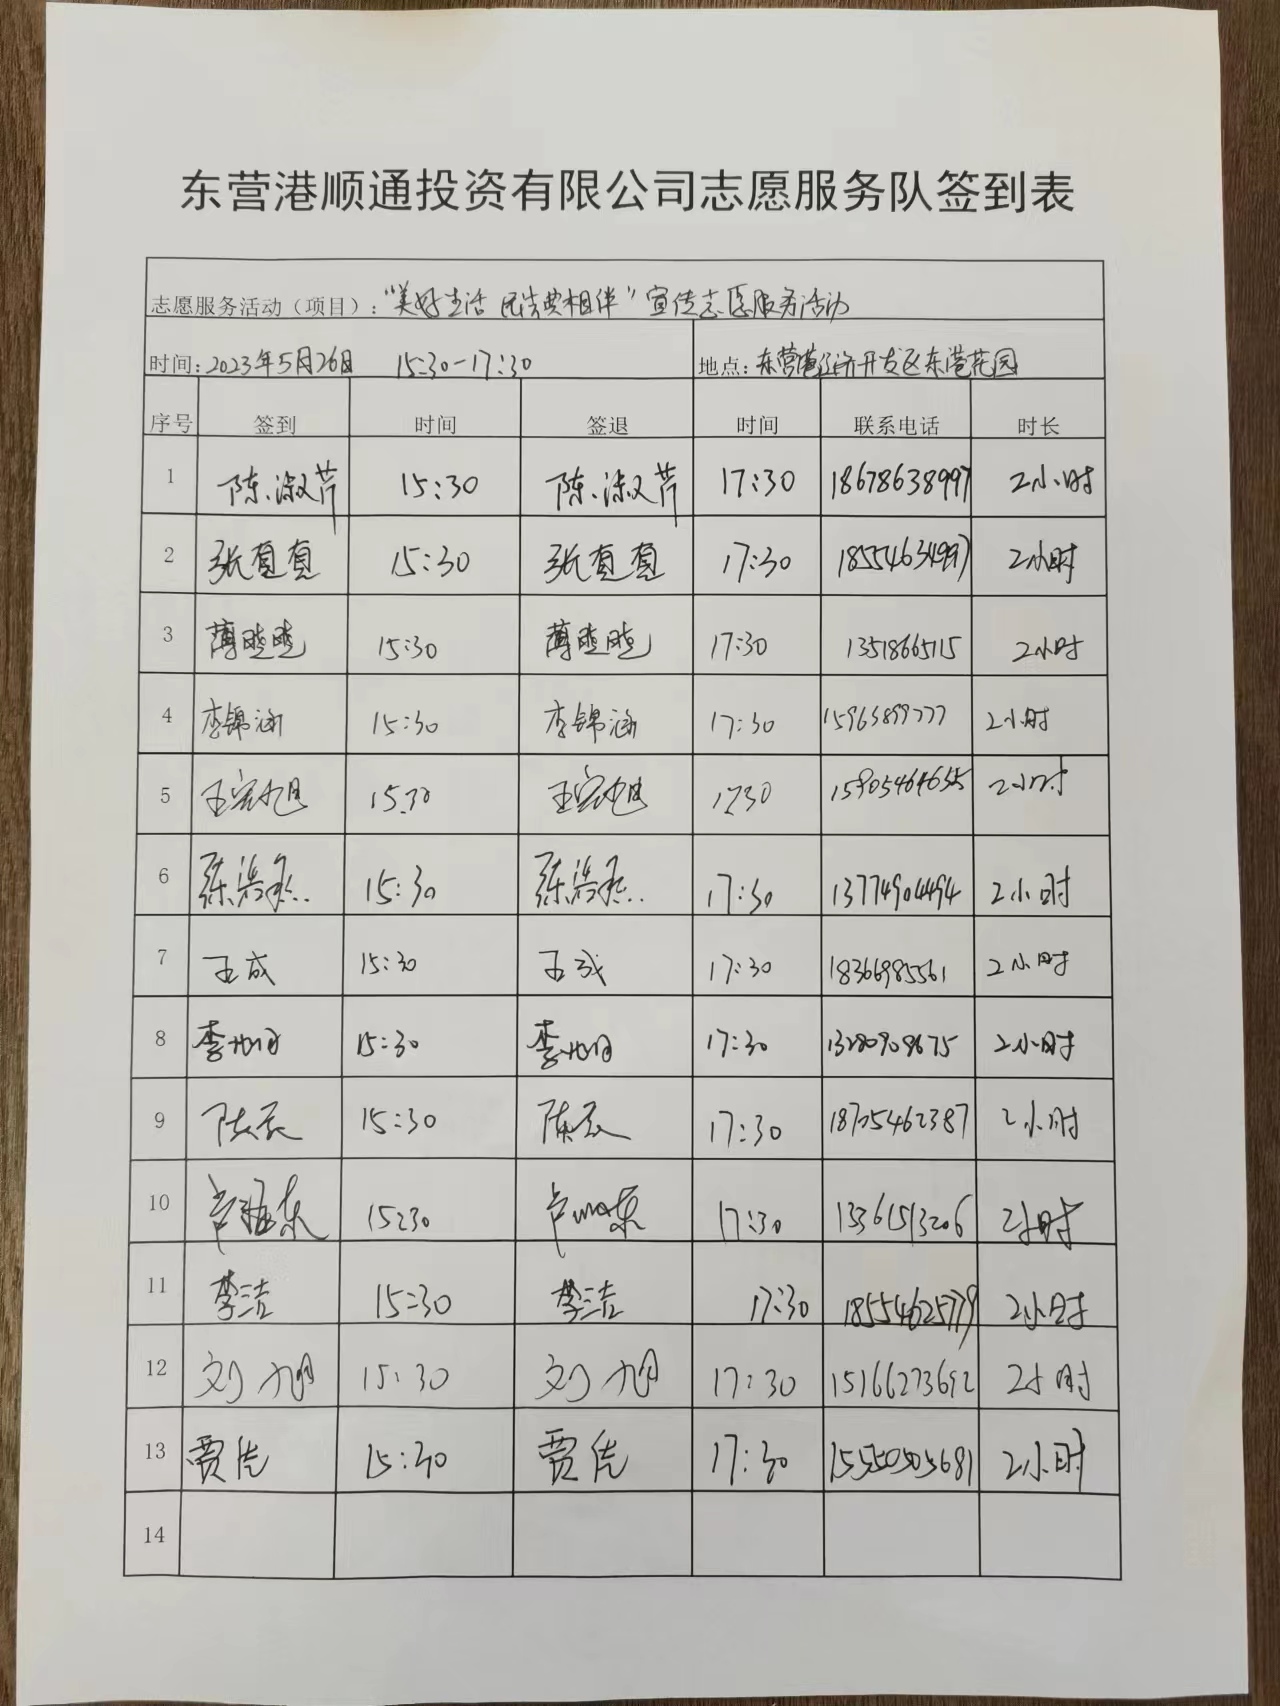 东营港顺通投资有限公司志愿服务队签到表
志愿服务活动（项目）：“美好生活 民法典相伴”宣传志愿服务活动
时间：2023年5月26日 15:30-17:30 地点：东营港经济开发区东港花园
序号 签到 时间 签退 时间 联系电话 时长
1 陈淑芹 15:30 陈淑芹 17:30 18678638997 2小时
2 张真真 15:30 张真真 17:30 18554634997 2小时
3 薄晓晓 15:30 薄晓晓 17:30 13518665115 2小时
4 李锦涵 15:30 李锦涵 17:30 15963899777 2小时
5 15:30 1730 15905464655 2小时
6 15:30 17:30 13774904494 2小时
7 王成 15:30 王成 17:30 18366985561 2小时
8 李旭日 15:30 李旭日 17:30 13280908675 2小时
9 陈辰 15:30 陈辰 17:30 2小时
10 15:30 17:30 13361513206 2小时
11 李洁 15:30 李洁 17:30 18554625779 2小时
12 刘旭 15:30 刘旭 17:30 15166273692 2小时
13 贾佳 15:30 贾佳 17:30 15550505681 2小时
14